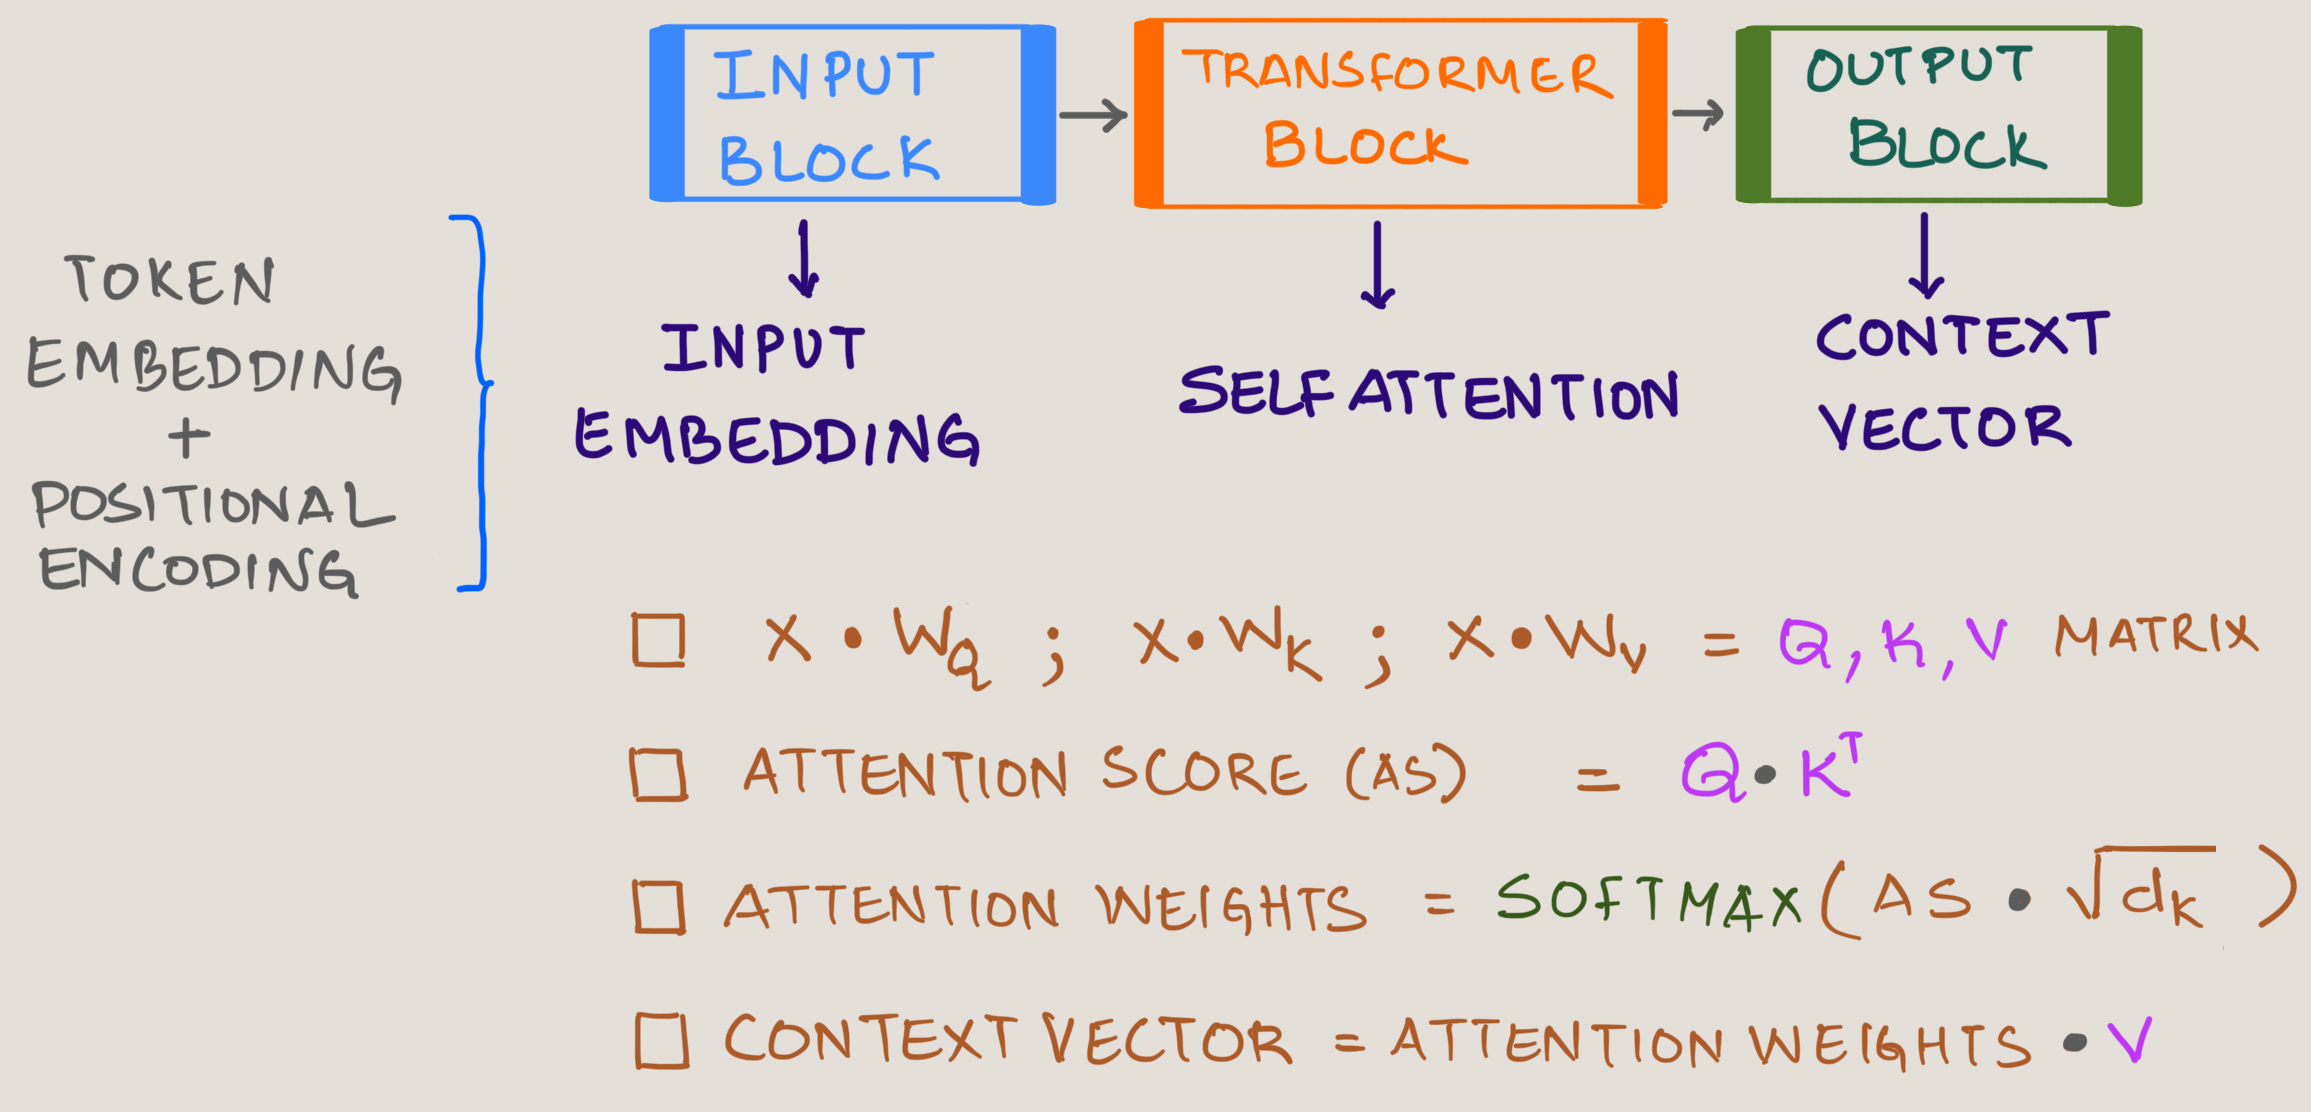 INPUT
BLOCK
TRANSFORMER
BLOCK
OUTPUT
BLOCK
TOKEN
EMBEDDING
+
POSITIONAL
ENCODING
INPUT
EMBEDDING
SELF ATTENTION
CONTEXT
VECTOR
X • W_Q ; X • W_K ; X • W_V = Q, K, V MATRIX
ATTENTION SCORE (AS) = Q • K^T
ATTENTION WEIGHTS = SOFTMAX (AS • √d_k)
CONTEXT VECTOR = ATTENTION WEIGHTS • V